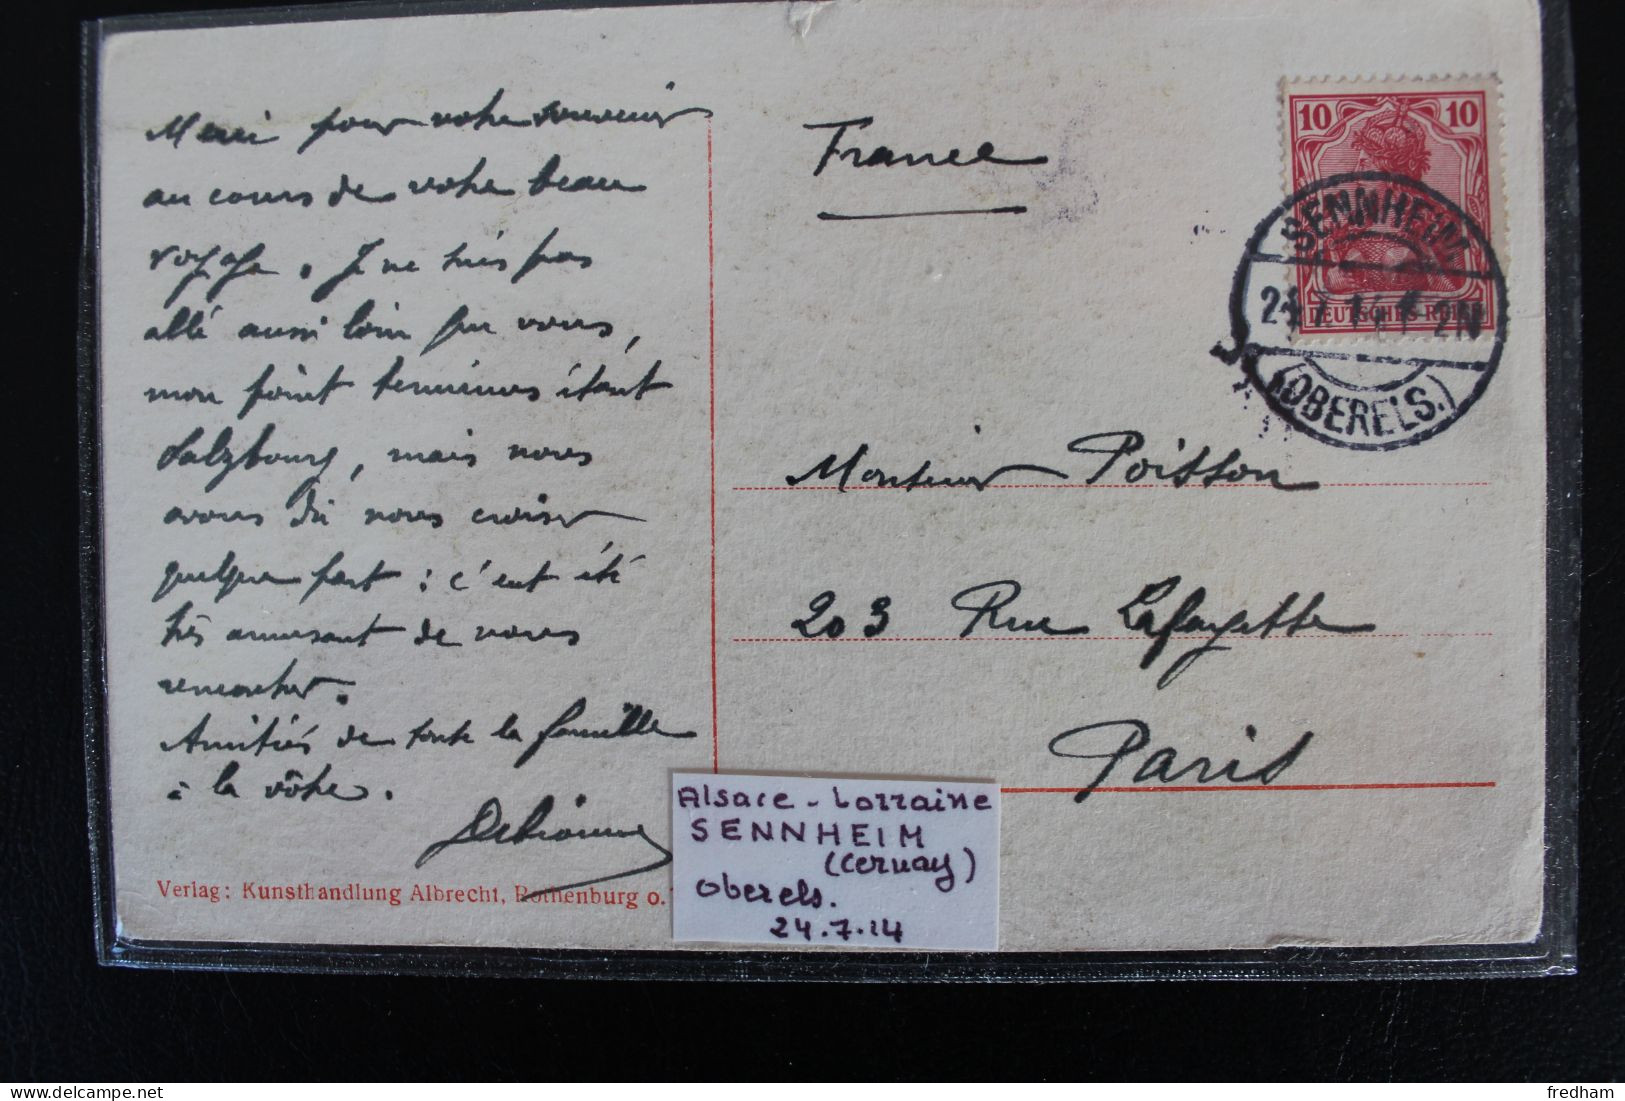 Merci pour votre souvenir
au cours de votre beau
voyage. Je ne suis pas
allé aussi loin que vous,
mon point terminus étant
Salzbourg, mais nous
avons dû nous croiser
quelque part : c'eut été
très amusant de nous
rencontrer.
Amitiés de toute la famille
à la vôtre.
Verlag: Kunsthandlung Albrecht, Rothenburg o.
France
10 10
DEUTSCHES REICH
SENNHEIM
24.7.14 1-2N
(OBERELS.)
Monsieur Poisson
203 Rue Lafayette
Paris
Alsace - Lorraine
SENNHEIM
(Cernay)
Oberels.
24.7.14
fredham